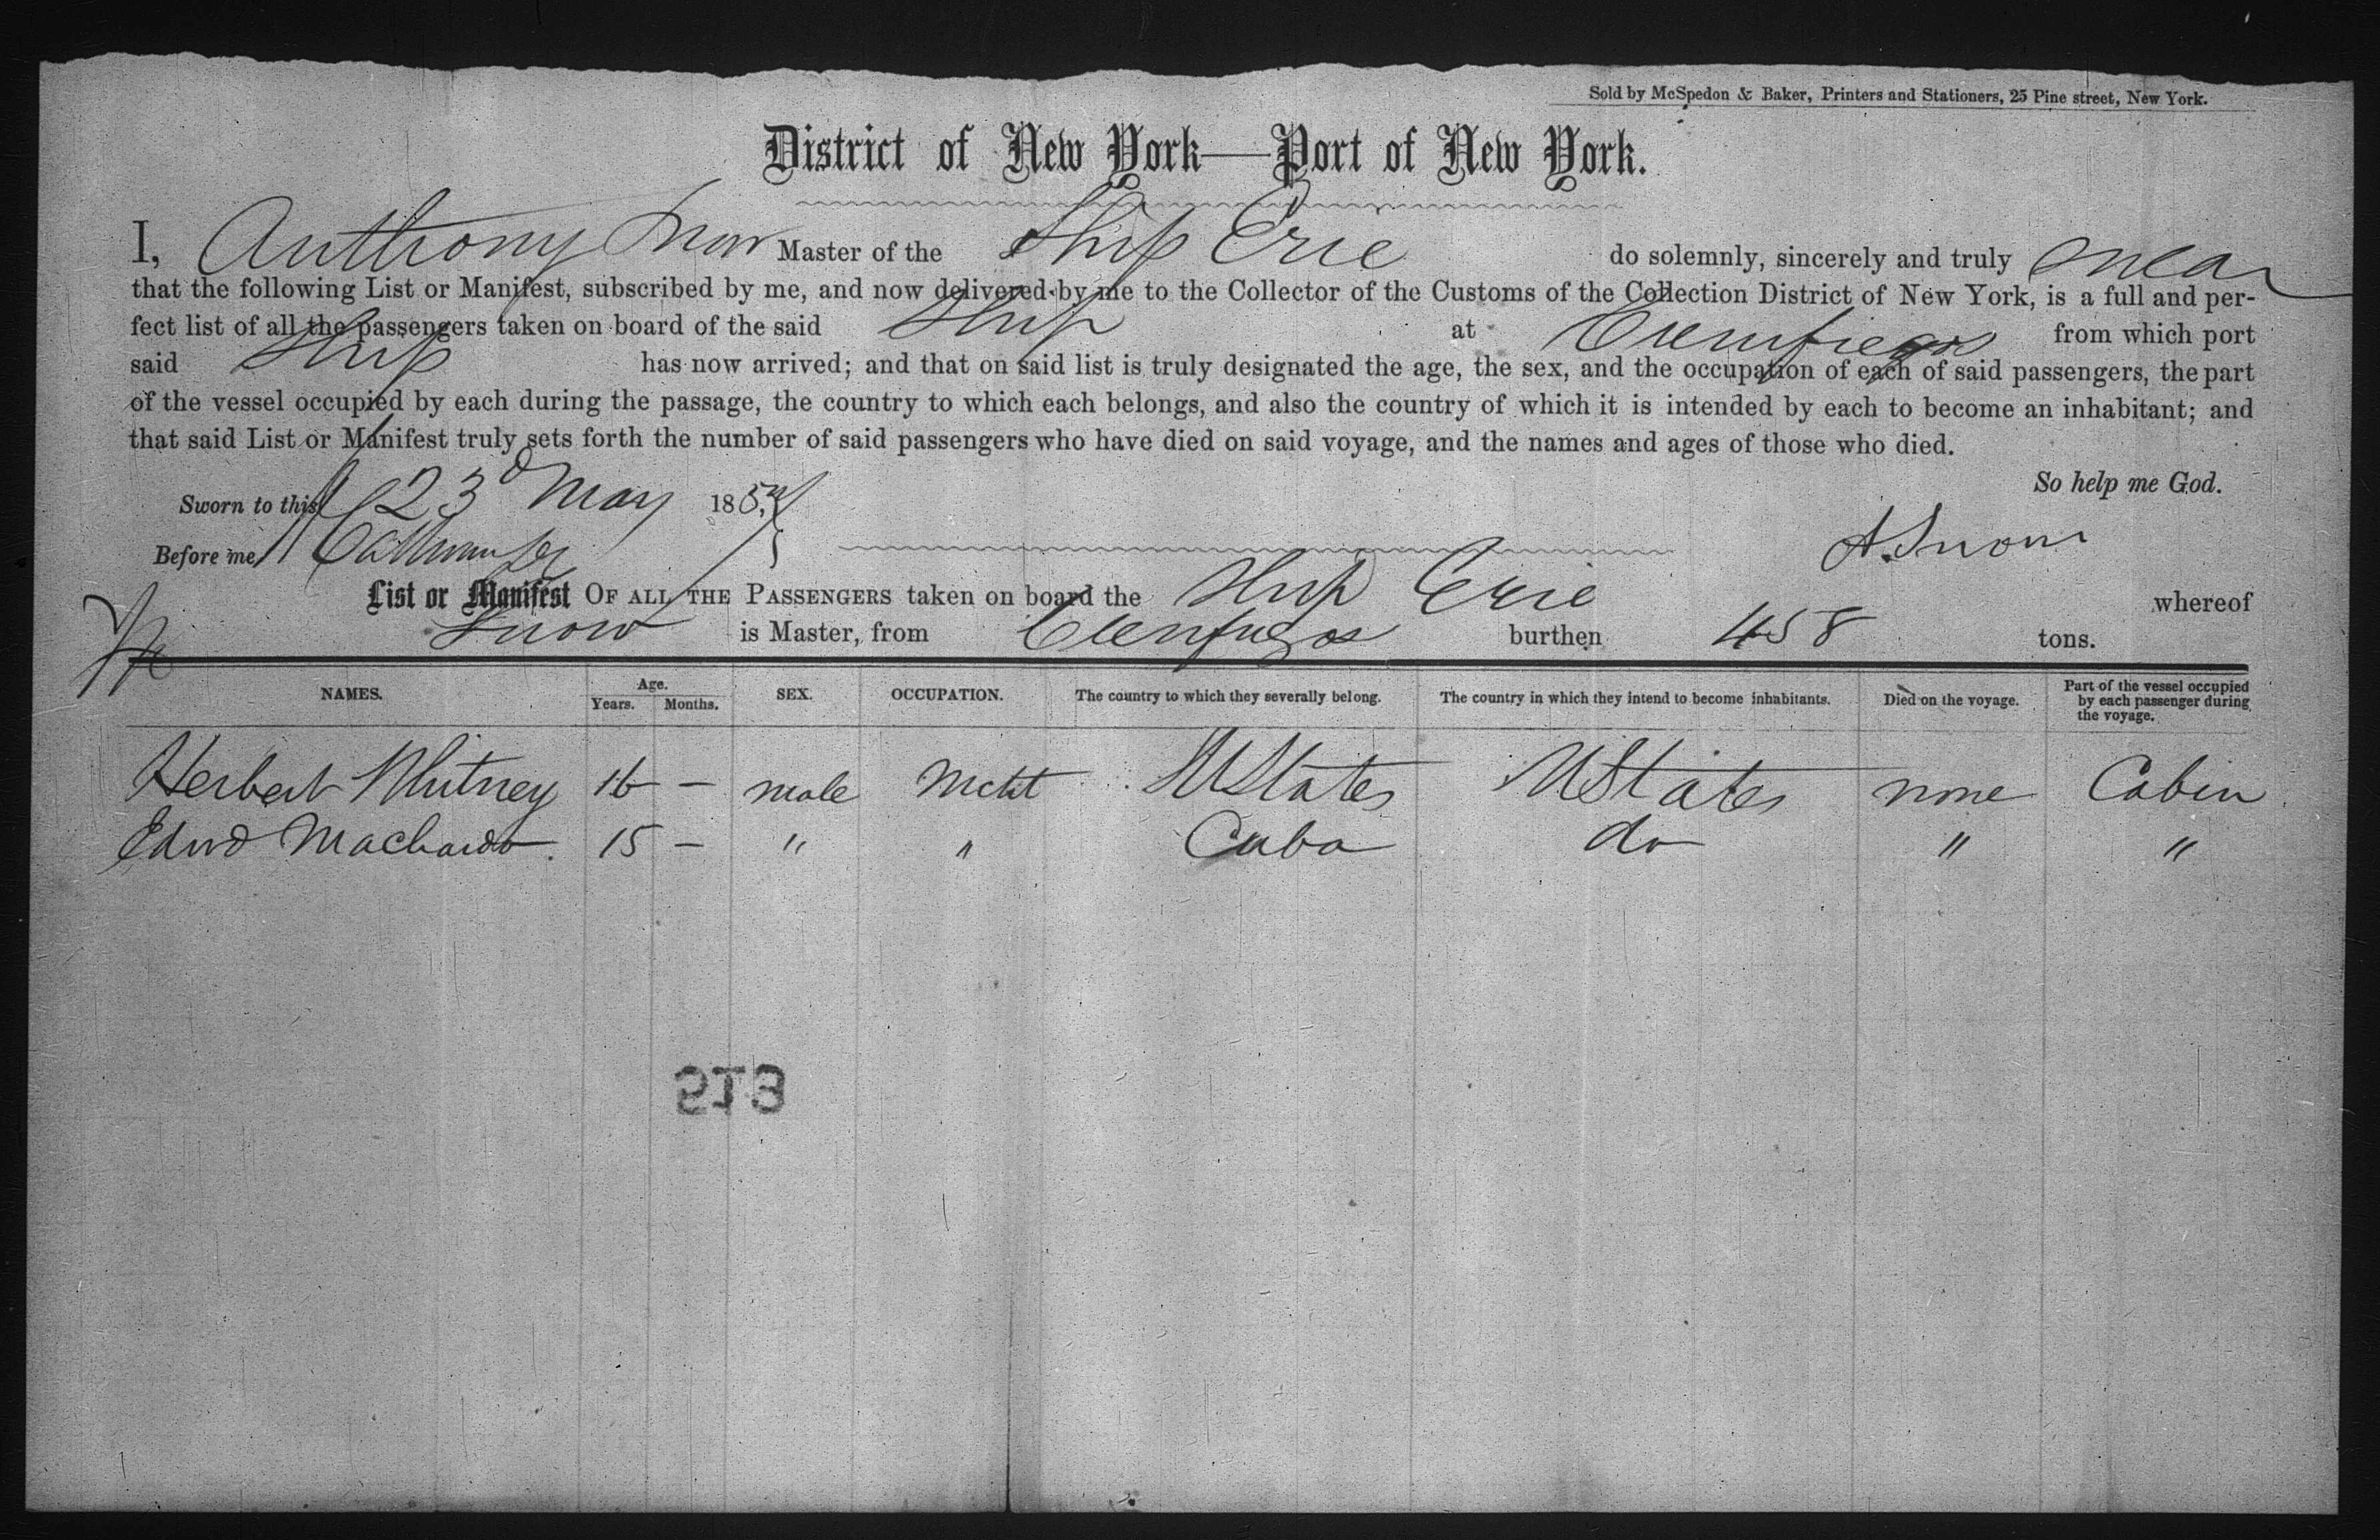 Sold by McSpedon & Baker, Printers and Stationers, 25 Pine street, New York.
District of New York—Port of New York.
I, Anthony Snow Master of the Ship Erie do solemnly, sincerely and truly swear
that the following List or Manifest, subscribed by me, and now delivered by me to the Collector of the Customs of the Collection District of New York, is a full and per-
fect list of all the passengers taken on board of the said Ship at Cienfuegos from which port
said Ship has now arrived; and that on said list is truly designated the age, the sex, and the occupation of each of said passengers, the part
of the vessel occupied by each during the passage, the country to which each belongs, and also the country of which it is intended by each to become an inhabitant; and
that said List or Manifest truly sets forth the number of said passengers who have died on said voyage, and the names and ages of those who died.
So help me God.
Sworn to this 23d May 185
A. Snow
Before me,
List or Manifest OF ALL THE PASSENGERS taken on board the Ship Erie whereof
Snow is Master, from Cienfuegos burthen 458 tons.
NAMES. Age. Years. Months. SEX. OCCUPATION. The country to which they severally belong. The country in which they intend to become inhabitants. Died on the voyage. Part of the vessel occupied by each passenger during the voyage.
Herbert Whitney 16 – male Mcht UStates UStates none Cabin
Edwd Machado 15 – " " Cuba do " "
513